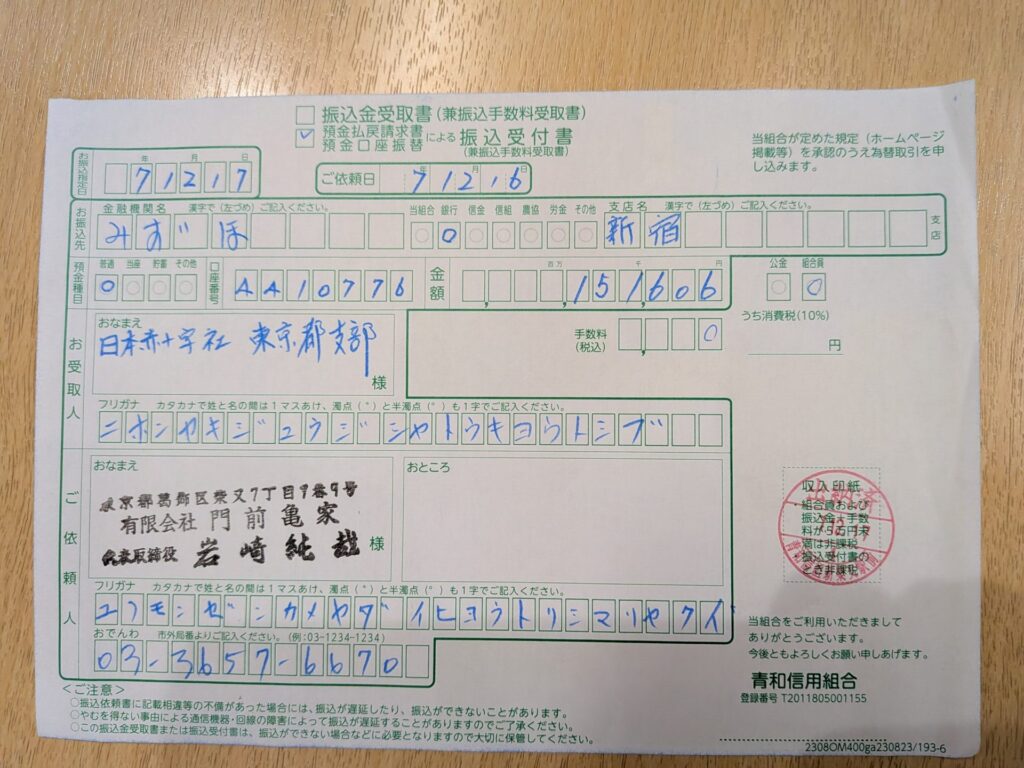 振込金受取書(兼振込手数料受取書)
預金払戻請求書
預金口座振替
による 振込受付書
(兼振込手数料受取書)
当組合が定めた規定(ホームページ
掲載等)を承認のうえ為替取引を申
し込みます。
お振込指定日 年 月 日
71217
ご依頼日 年 月 日
71216
お振込先
金融機関名 漢字で(左づめ)ご記入ください。
みずほ
当組合 銀行 信金 信組 農協 労金 その他
支店名 漢字で(左づめ)ご記入ください。
新宿
支店
預金種目
普通 当座 貯蓄 その他
口座番号
金額
百万 千 円
151,606
公金 組合員
お受取人
おなまえ
日本赤十字社 東京都支部
様
手数料
(税込)
0
うち消費税(10%)
円
フリガナ カタカナで姓と名の間は1マスあけ、濁点(゛)と半濁点(゜)も1字でご記入ください。
ご依頼人
おなまえ
東京都葛飾区柴又7丁目9番9号
有限会社 門前亀家
代表取締役 岩崎純雄
様
おところ
フリガナ カタカナで姓と名の間は1マスあけ、濁点(゛)と半濁点(゜)も1字でご記入ください。
おでんわ 市外局番よりご記入ください。(例:03-1234-1234)
03-3657-6670
収入印紙
・組合員および
振込金+手数
料が5万円未
満は非課税
・振込受付書の
とき非課税
当組合をご利用いただきまして
ありがとうございます。
今後ともよろしくお願い申しあげます。
青和信用組合
登録番号 T2011805001155
<ご注意>
○振込依頼書に記載相違等の不備があった場合には、振込が遅延したり、振込ができないことがあります。
○やむを得ない事由による通信機器・回線の障害によって振込が遅延することがありますのでご了承ください。
○この振込金受取書または振込受付書は、振込ができない場合などに必要となりますので大切に保管してください。
2308OM400ga230823/193-6